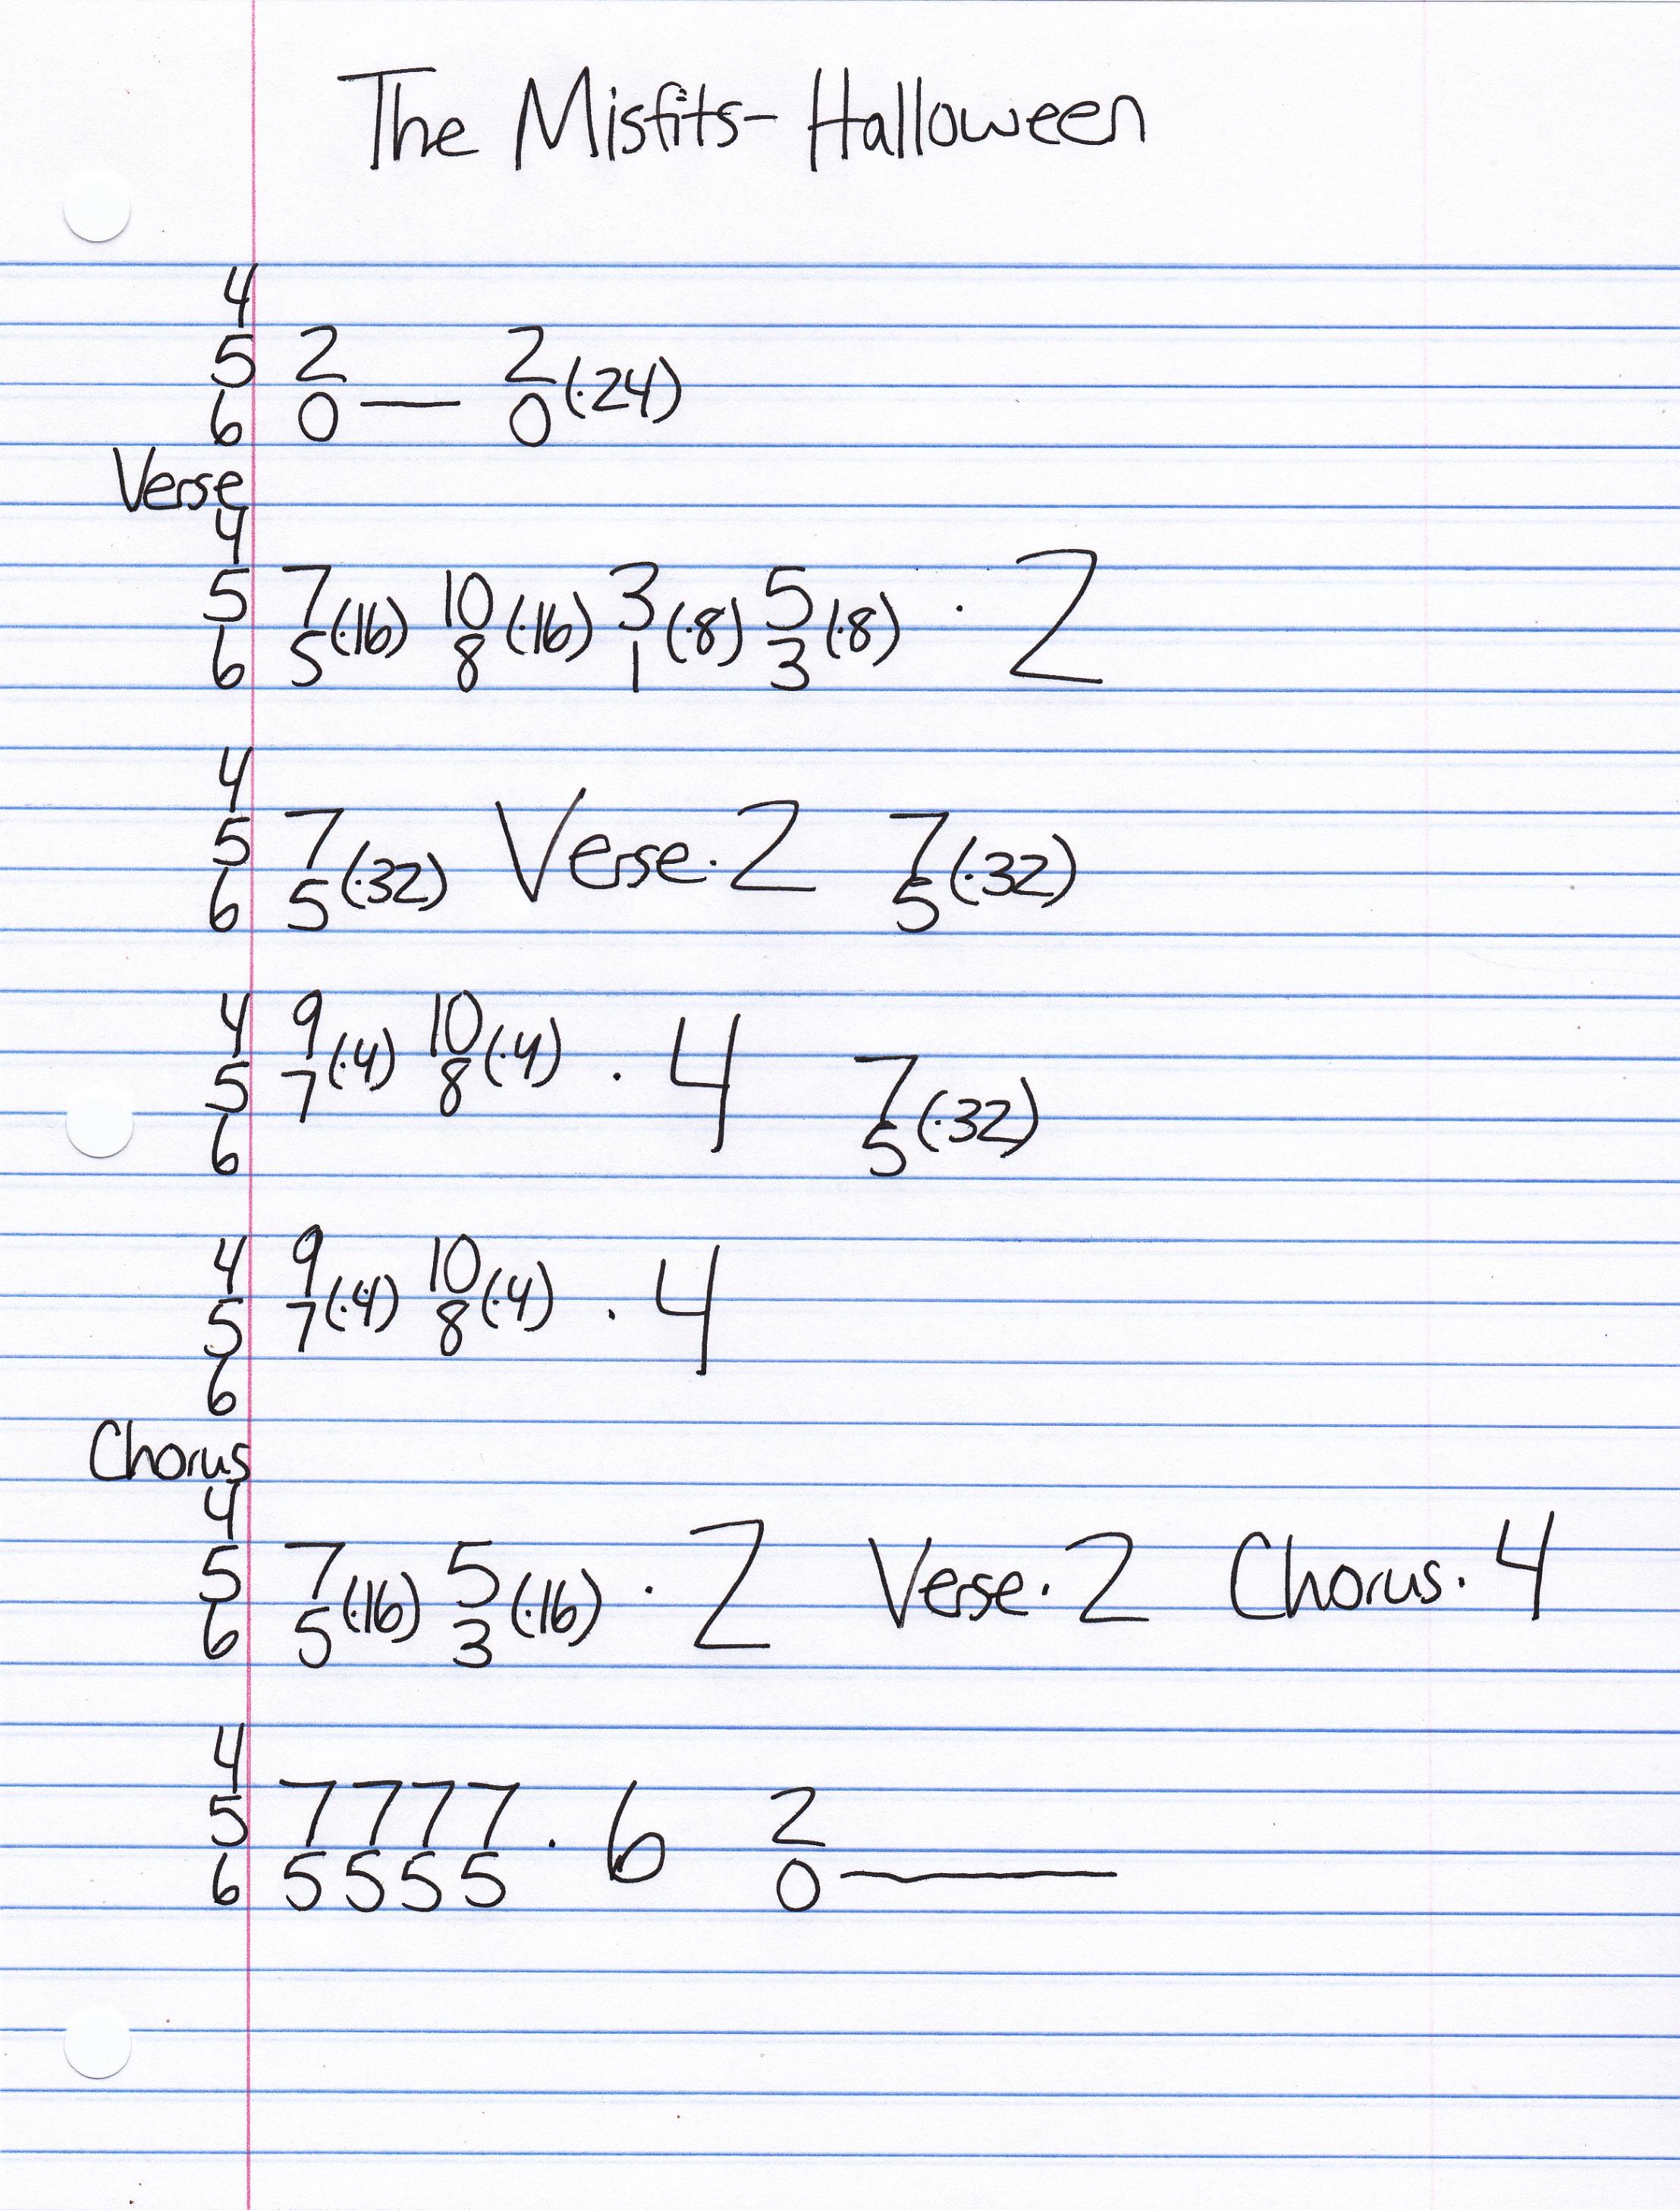 The Misfits- Halloween
4
5 2 2
6 0 — 0 (·24)
Verse
4
5 7 (·16) 10 (·16) 3 (·8) 5 (·8) · 2
6 5 8 1 3
4
5 7 (·32) Verse · 2 7 (·32)
6 5 5
4 9 (·4) 10 (·4) · 4
5 7 8 7 (·32)
6 5
4 9 (·4) 10 (·4) · 4
5 7 8
6
Chorus
4
5 7 (·16) 5 (·16) · 2 Verse · 2 Chorus · 4
6 5 3
4
5 7 7 7 7 · 6 2
6 5 5 5 5 0 —